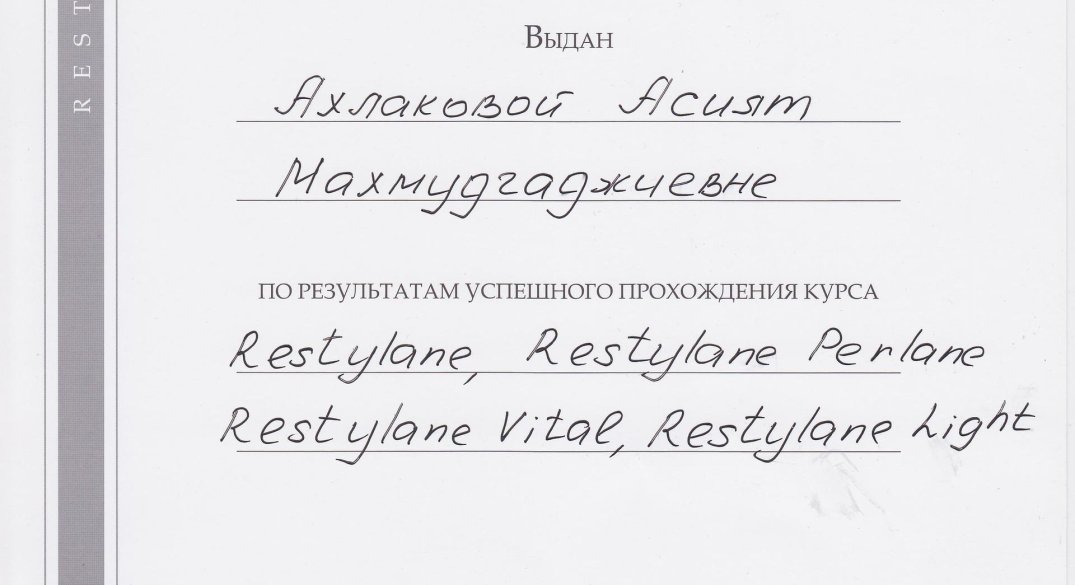 REST
Выдан
Ахлаковой Асият
Махмудгаджиевне
ПО РЕЗУЛЬТАТАМ УСПЕШНОГО ПРОХОЖДЕНИЯ КУРСА
Restylane, Restylane Perlane
Restylane Vital, Restylane Light